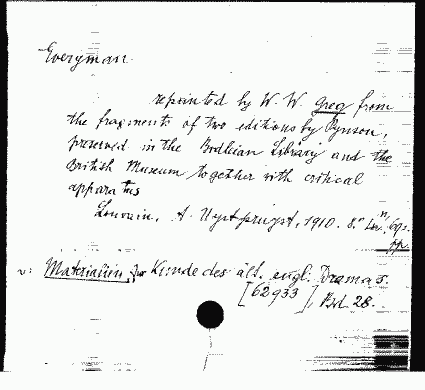 Everyman
reprinted by W. W. Greg from
the fragments of two editions by Pynson,
preserved in the Bodleian Library and the
British Museum together with critical
apparatus
Louvain, A. Uystpruyst, 1910. 8.°
pp.
Materialien zur Kunde des ält. engl. Dramas.
[62933], Bd. 28.